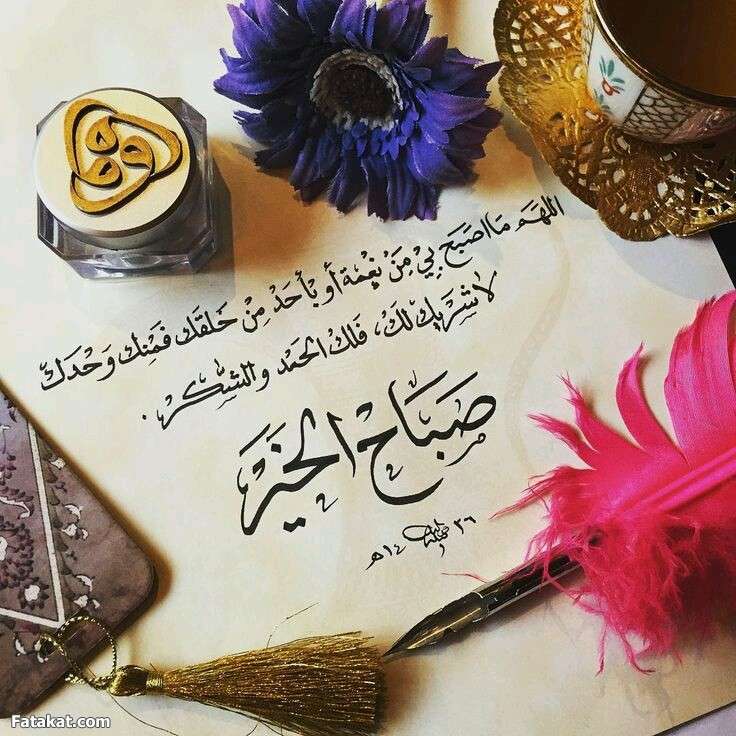 اللهم ما اصبح بي من نعمة أو بأحد من خلقك فمنك وحدك
لا شريك لك، فلك الحمد والشكر.
صباح الخير
١٤٣٦هـ
Fatakat.com